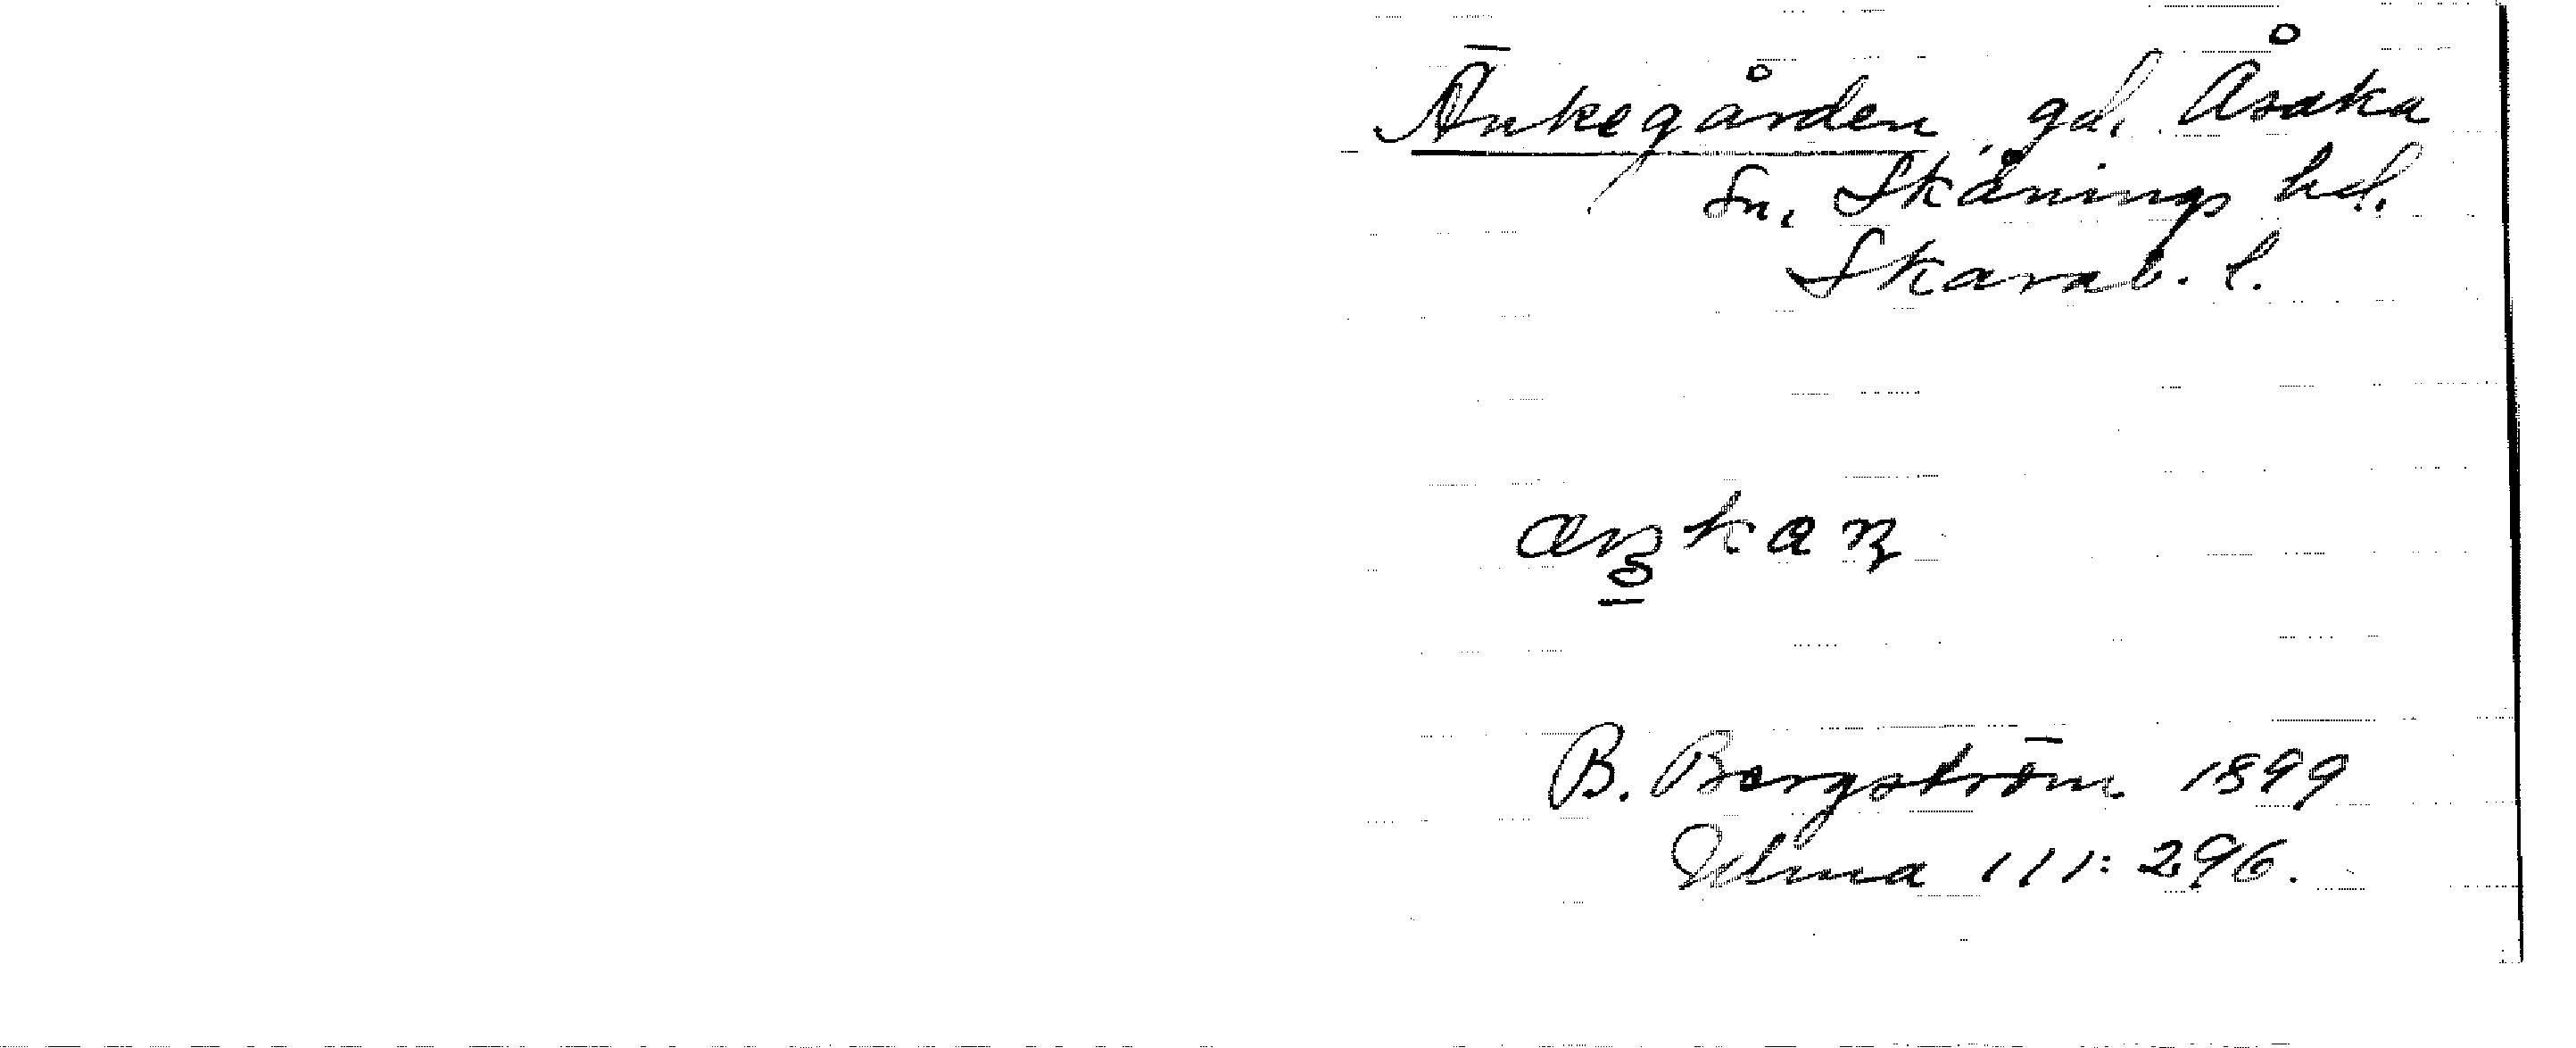 Änkegården, gd. Åsaka
Sn. Skånings hd.
Skarab. l.
B. Bergström 1899
Ulma 111:296.